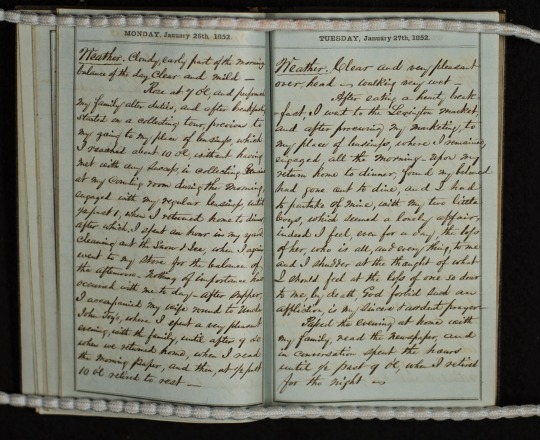 MONDAY, January 26th, 1852.
Weather. Cloudy, early part of the morning
balance of the day Clear and mild —
Rose at 7 OC and performed
my family altar duties, and after breakfast
started on a collecting tour, previous to
my going to my place of business, which
I reached about 10 OC, without having
met with any success, in collecting. Remained
at my Counting room during the Morning,
engaged with my regular business, until
1/2 past 1, when I returned home to dinner
after which, I spent an hour in my yard
cleaning out the Snow & Ice, when I again
went to my Store for the balance of
the afternoon. Nothing of importance has
occurred with me to-day — After supper,
I accompanied my wife round to Uncle
John Toy's, where I spent a very pleasant
evening, with the family, until after 9 OC
when we returned home, when I read
the morning paper, and then, at 1/2 past
10 OC retired to rest —
TUESDAY, January 27th, 1852.
Weather. Clear and very pleasant
over, head — walking very wet —
After eating a hearty break
-fast, I went to the Lexington market,
and after procuring my marketing, to
my place of business, where I remained
engaged, all the morning. Upon my
return home to dinner, found my beloved
had gone out to dine, and I had
to partake of mine, with my two little
boys, which seemed a lonely affair,
indeed I feel, even for a day, the loss
of her, who is all, and every thing, to me
and I shudder at the thought of what
I should feel at the loss of one so dear
to me, by death, God forbid such an
affliction, is my sincere & ardent prayer —
Passed the evening at home with
my family, read the newspaper, and
in conversation spent the hours
until 1/2 past 9 OC, when I retired
for the night —